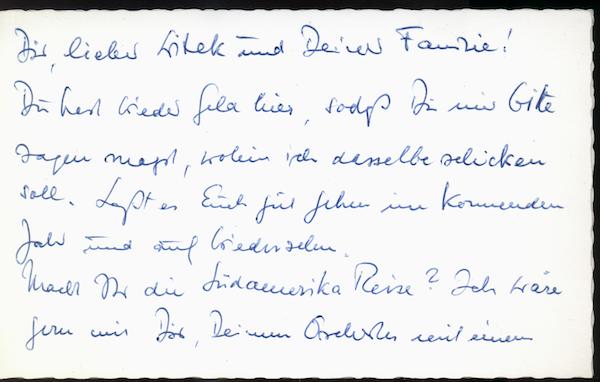 Dir, lieber Witek und Deiner Familie!
Du hast wieder Geld hier, sodaß Du mir bitte
sagen magst, wohin ich dasselbe schicken
soll. Laßt es Euch gut gehen im kommenden
Jahr und auf Wiedersehen.
Macht Ihr die Südamerika Reise? Ich wäre
gern mit Dir, Deinem Orchester und einem